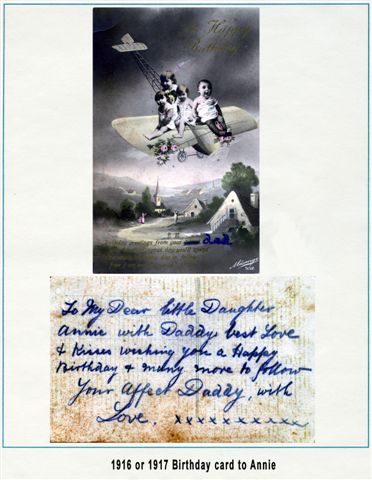 A Happy
Birthday
greetings from your dad
To My Dear little Daughter
Annie with Daddys best Love
& Kisses wishing you a Happy
Birthday & many more to follow
Your Affect Daddy, with
Love, xxxxxxxxxxx
1916 or 1917 Birthday card to Annie